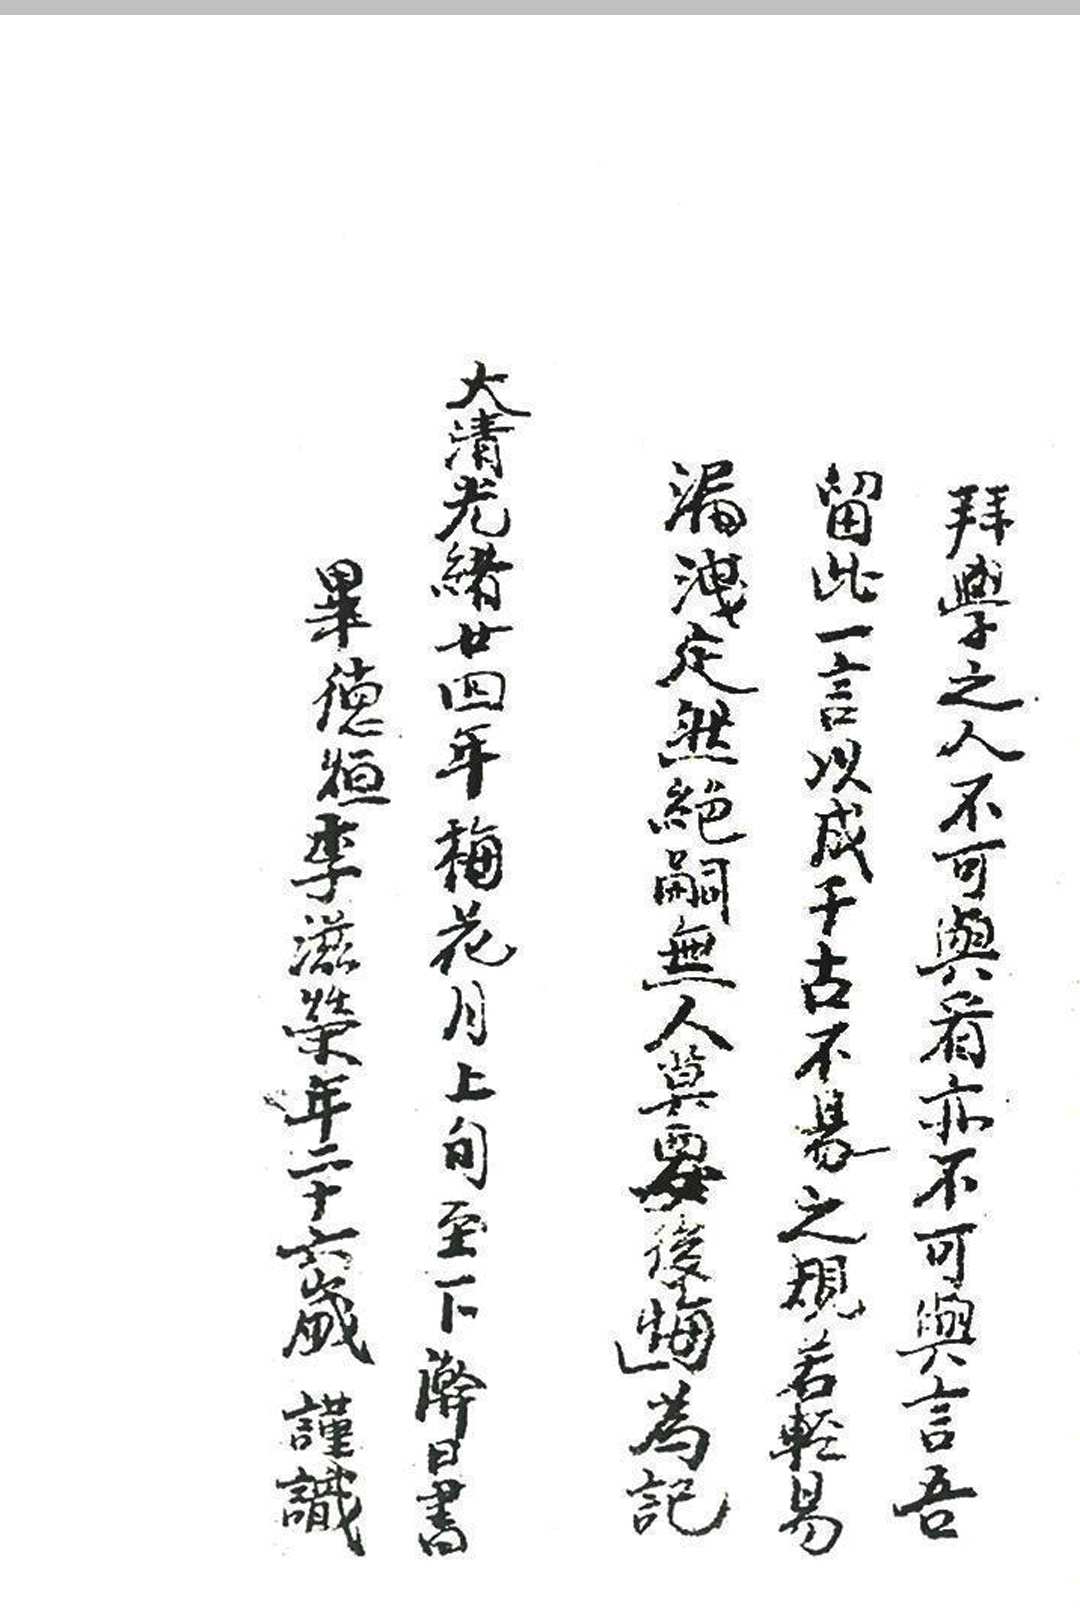 拜學之人不可與看亦不可與言吾
留此一言以成千古不易之規若輕易
漏洩定然絕嗣無人莫要後悔為記
大清光緒廿四年梅花月上旬至下澣日書
畢德恒李滋榮年二十六歲 謹識